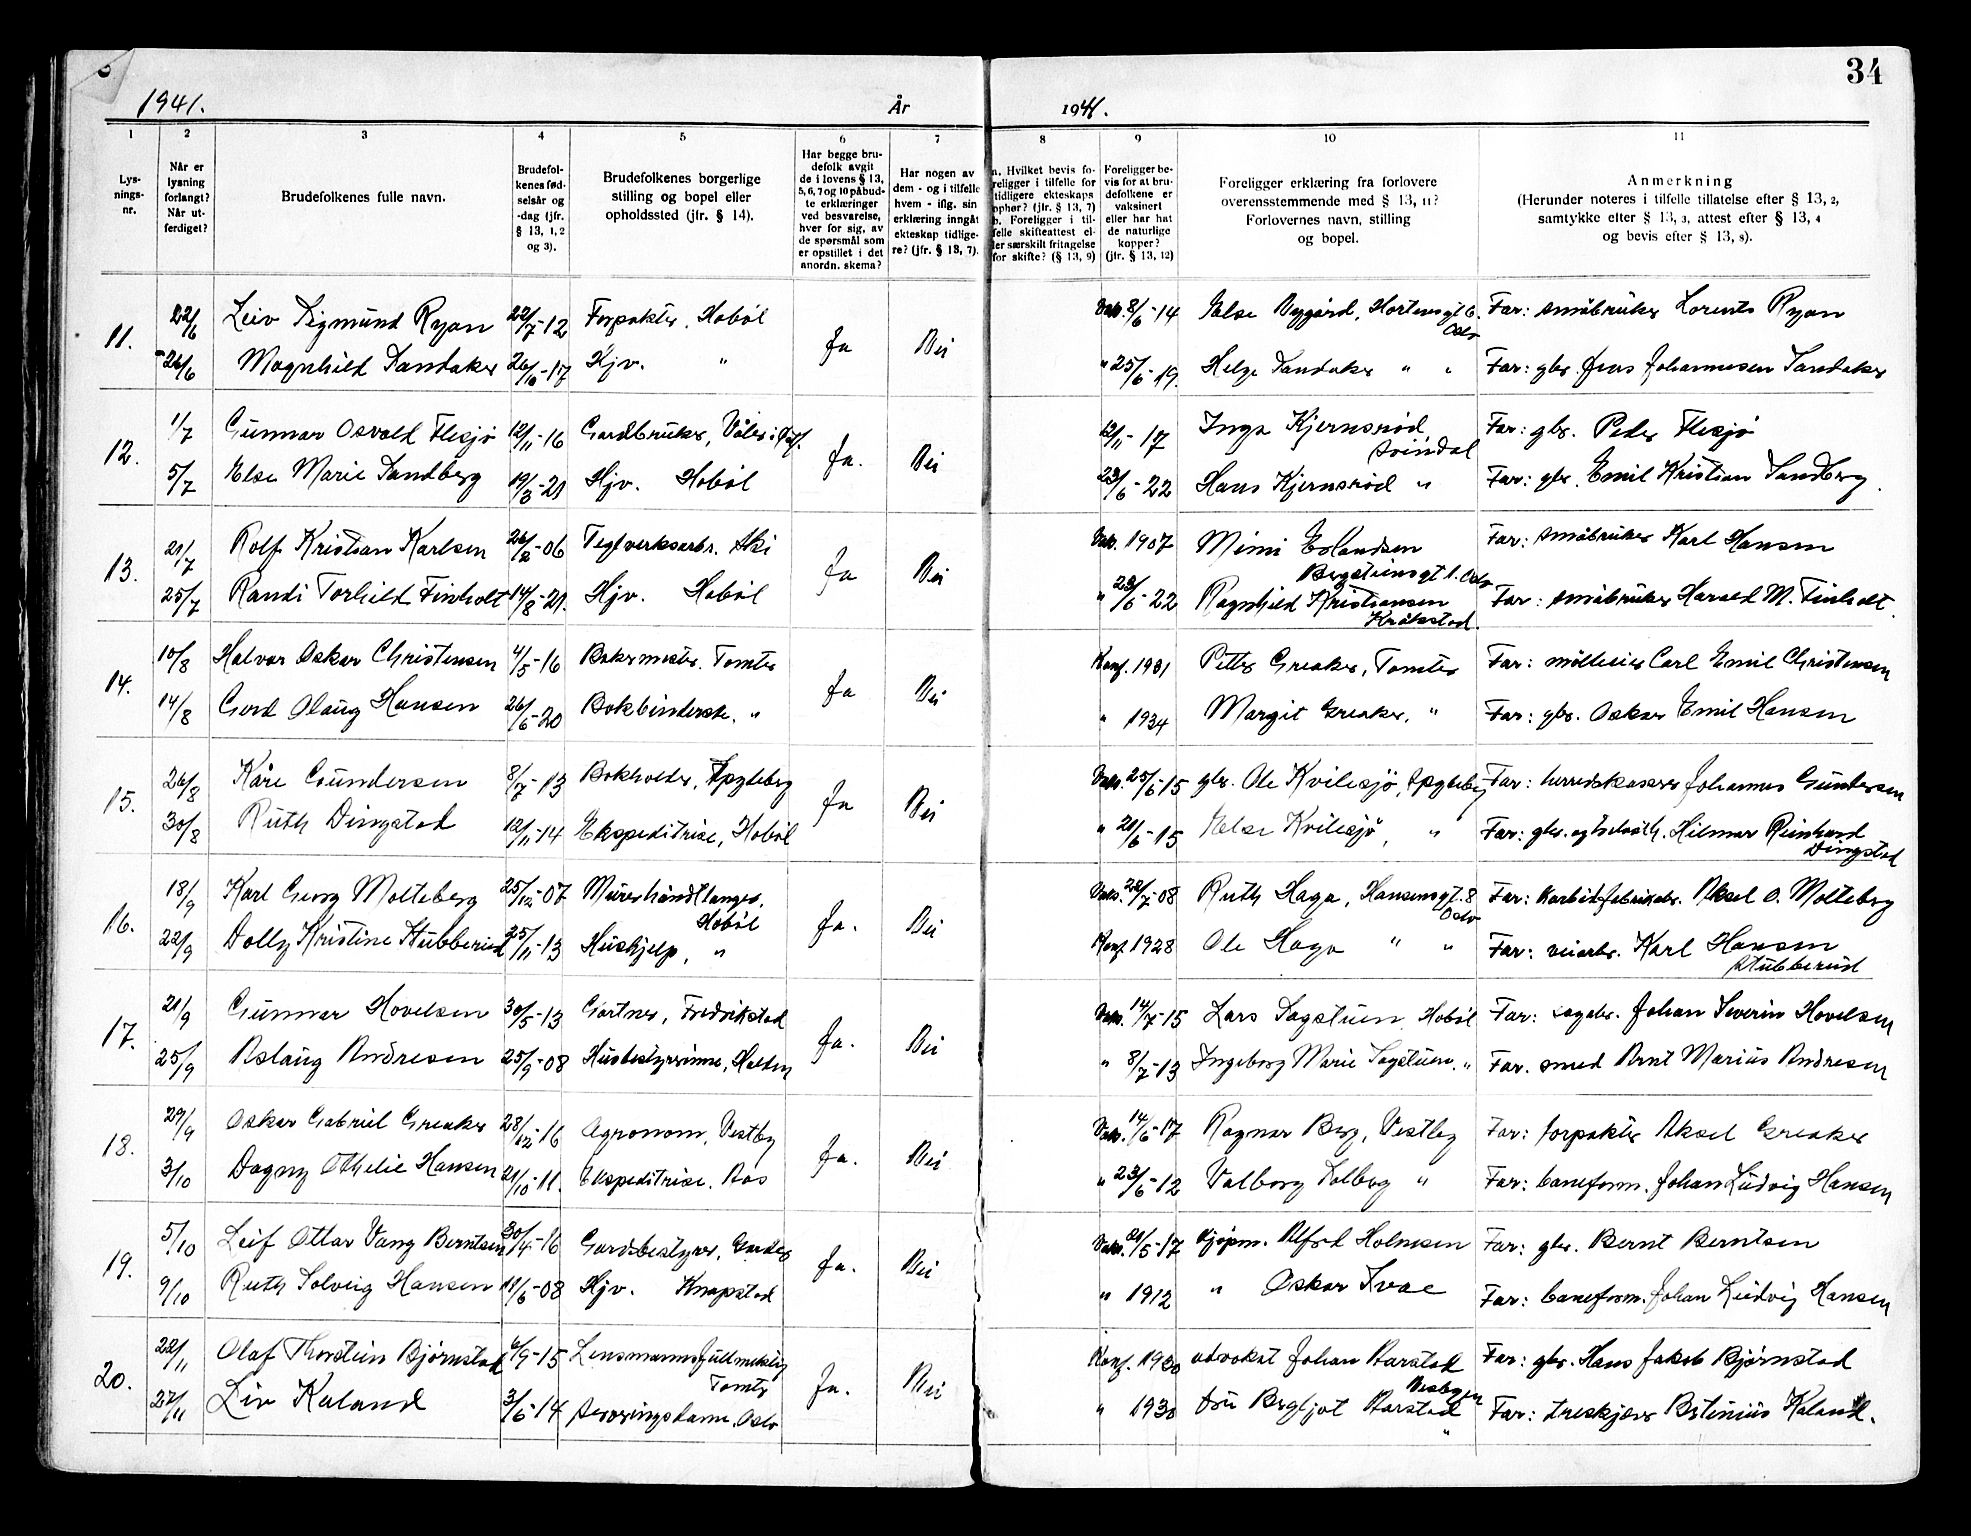 34
1941.
År
1941.
1
2
3
4
5
6
7
8
9
10
11
Lys-
nings-
nr.
Når er
lysning
forlangt?
Når ut-
ferdiget?
Brudefolkenes fulle navn.
Brudefol-
kenes fød-
selsår og
-dag (jfr.
§ 13, 1, 2
og 3).
Brudefolkenes borgerlige
stilling og bopel eller
opholdssted (jfr. § 14).
Har begge bru-
defolk avgit
de i lovens § 13,
5, 6, 7 og 10 påbud-
te erklæringer
ved besvarelse,
hver for sig, av
de spørsmål som
er opstillet i det
anordn. skema?
Har nogen av
dem - og i tilfelle
hvem - iflg. sin
erklæring inngått
ekteskap tidlige-
re? (jfr. § 13, 7).
a. Hvilket bevis fo-
religger i tilfelle for
tidligere ekteskaps
ophør? (jfr. § 13, 7)
b. Foreligger i til-
felle skifteattest el-
ler særskilt fritagelse
for skifte? (§ 13, 9)
Foreligger be-
vis for at bru-
defolkene er
vaksinert
eller har hat
de naturlige
kopper?
(jfr. § 13, 12)
Foreligger erklæring fra forlovere
overensstemmende med § 13, 11?
Forlovernes navn, stilling
og bopel.
Anmerkning
(Herunder noteres i tilfelle tillatelse efter § 13, 2,
samtykke efter § 13, 3, attest efter § 13, 4
og bevis efter § 13, 8).
11. 22/6 Leiv Sigmund Ryan 22/7-12 Forpakter, Hobøl Ja Nei Vak. 8/6-14 Else Nygård, Hortensgt 6. Oslo Far: småbruker Lorents Ryan
26/6 Magnhild Sandaker 26/10-17 Hjv. " " 25/6-19. Helge Sandaker " " Far: gbr. Jens Johannesen Sandaker
12. 1/7 Gunnar Osvald Flesjø 12/11-16 Gardbruker, Våler i Ja. Nei 12/11-17 Inga Kjernsrød Svindal Far: gbr. Peder Flesjø
5/7 Else Marie Sandberg 19/3-21 Hjv. Hobøl 23/6-22 Hans Kjernsrød " Far: gbr. Emil Kristian Sandberg.
13. 21/7 Rolf Kristian Karlsen 26/2-06 Teglverksarbr. Ski Ja Nei Vak. 1907 Mimi Erlandsen Bergstiensgt 1. Oslo Far: småbruker Karl Hansen
25/7 Randi Torhild Finholt 14/8-21. Hjv. Hobøl " 23/6-22 Ragnhild Kristiansen Kråkstad. Far: småbruker Harald M. Finholt.
14. 10/8 Halvor Oskar Christensen 4/5-16 Bakermester. Tomter Ja Nei Konf. 1931 Petter Greaker, Tomter Far: mølleeier Carl Emil Christensen
14/8 Gerd Olaug Hansen 26/6-20 Bokbinderske. " " 1934 Margit Greaker, " Far: gbr. Oskar Emil Hansen
15. 26/8 Kåre Gundersen 8/7-13 Bokholder, Spydeberg Ja Nei Vak. 25/6-15 gbr. Ole Kvilesjø, Spydeberg Far: herredskasser Johannes Gundersen
30/8 Ruth Dingstad 12/11-14 Ekspeditrise, Hobøl " 21/6-15 Else Kvilesjø, " Far: gbr. og Hilmar Reinhard Dingstad
16. 18/9 Karl Georg Molteberg 25/12-07 Murerhåndtlanger, Hobøl Ja. Nei Vak. 22/7-08 Ruth Haga, Hansensgt. 8 Oslo Far: karbidfabrikarb. Aksel O. Molteberg
22/9 Dolly Kristine Stubberud 25/11-13 Hushjelp, " Konf. 1928 Ole Haga " " Far: veiarb. Karl Hansen Stubberud
17. 21/9 Gunnar Hovelsen 30/5-13 Gartner, Fredrikstad Ja. Nei Vak. 14/7-15 Lars Sagstuen Hobøl Far: sagarb. Johan Severin Hovelsen
25/9 Aslaug Andresen 25/9-08 Husbestyrerinne, Halden " 8/7-13 Ingeborg Marie Sagstuen. " Far. smed Arnt Marius Andresen
18. 29/9 Oskar Gabriel Greaker 28/12-16 Agronom, Vestby Ja. Nei Vak. 14/6-17 Ragnar Berg, Vestby Far: forpakter Aksel Greaker
3/10 Dagny Othelie Hansen 21/10-11. Ekspeditrise. Aas " 23/6-12 Valborg Solberg " Far: baneform. Johan Ludvig Hansen
19. 5/10 Leif Ottar Vang Berntsen 30/4-16 Gardbestyrer, Garder Ja. Nei Vak. 21/5-17 kjøpm. Alfred Holmsen Far: gbr. Bernt Berntsen
9/10 Ruth Solveig Hansen 11/6-08 Hjv. Knapstad " 1912 " Oskar Svae Far: baneform. Johan Ludvig Hansen
20. 22/11 Olaf Thorstein Bjørnstad 6/9-15 Lensmannsfullmektig Tomter Ja. Nei Konf. 1930 advokat Johan Aarstad Far: gbr. Hans Jakob Bjørnstad
27/11 Liv Kaland 3/6-14 Serveringsdame. Oslo " 1930 fru Bergljot Aarstad " Far: treskjærer Kaland.